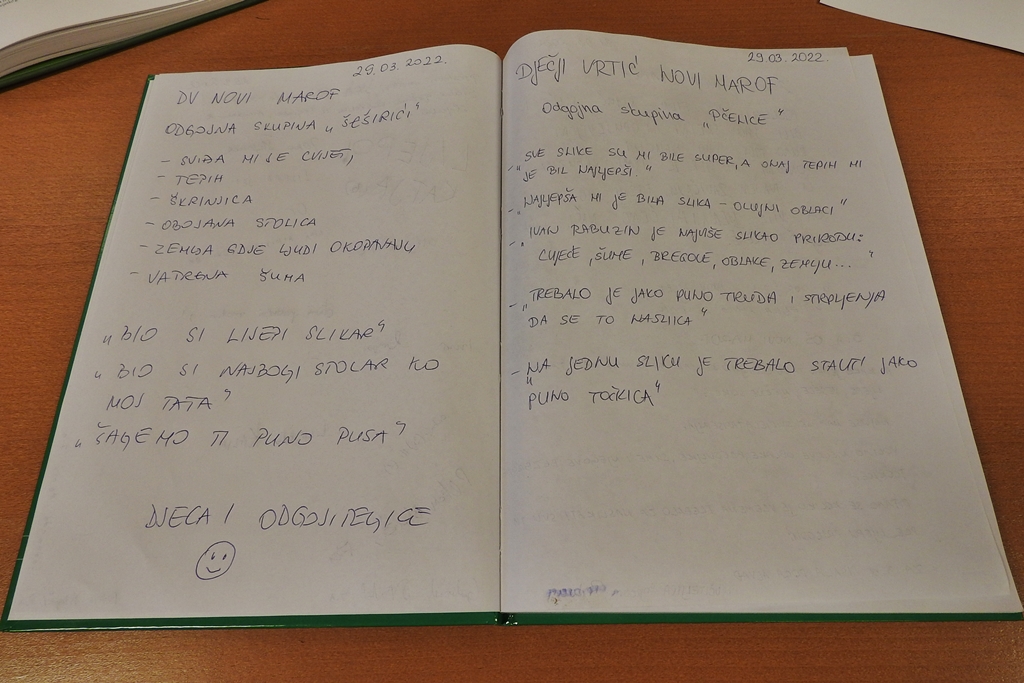 29.03.2022.
DV NOVI MAROF
ODGOJNA SKUPINA „ŠEŠIRIĆI"
- SVIĐA MI SE CVIJET,
- TEPIH
- ŠKRINJICA
- OBOJANA STOLICA
- ZEMLJA GDJE LJUDI OKOPAVAJU
- VATRENA ŠUMA
„BIO SI LIJEPI SLIKAR"
„BIO SI NAJBOLJI STOLAR KO
MOJ TATA"
„ŠALJEMO TI PUNO PUSA"
DJECA I ODGOJITELJICE
29.03.2022.
DJEČJI VRTIĆ NOVI MAROF
Odgojna skupina „PČELICE"
- „SVE SLIKE SU MI BILE SUPER, A ONAJ TEPIH MI
JE BIL NAJLJEPŠI."
- „NAJLJEPŠA MI JE BILA SLIKA - OLUJNI OBLACI"
- „IVAN RABUZIN JE NAJVIŠE SLIKAO PRIRODU:
CVIJEĆE, ŠUME, BREGOLE, OBLAKE, ZEMLJU..."
- „TREBALO JE JAKO PUNO TRUDA I STRPLJENJA
DA SE TO NASLIKA"
- „NA JEDNU SLIKU JE TREBALO STAVITI JAKO
PUNO TOČKICA"